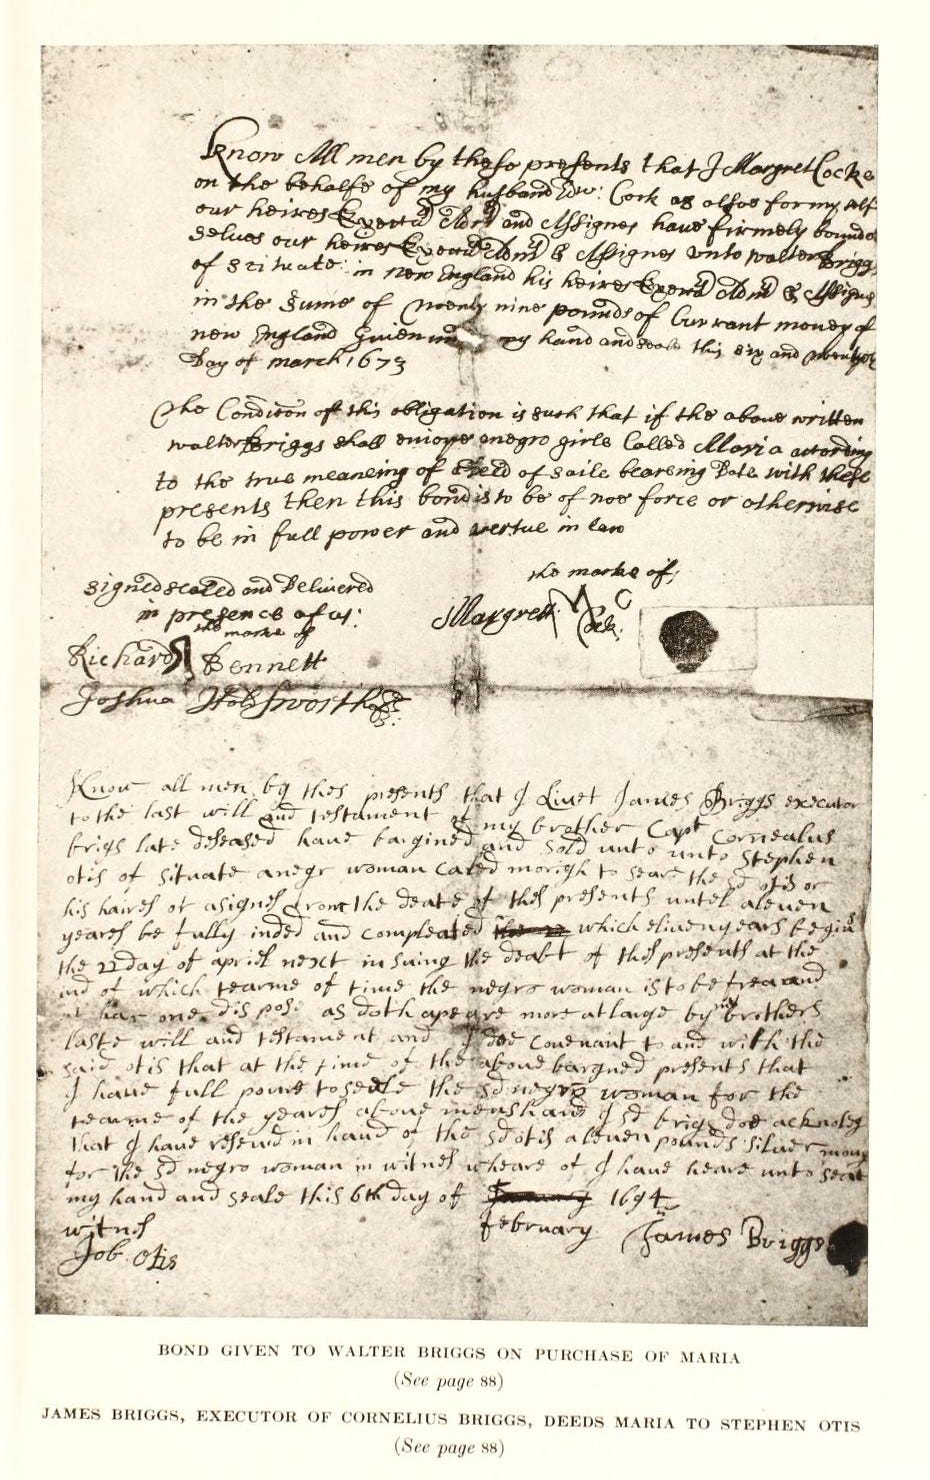 Know All men by these presents that I Margret Cocke
on the behalfe of my husband Cork as alsoe for my self
our heires and Assignes have firmely bounde
selves our heires & Assignes unto walter Briggs
of Scituate in new England his heires & Assignes
in the Sume of twenty nine pounds of Currant money of
new England Given my hand and seale this six and twentyeth
Day of march 1673
The Condicon of this obligation is such that if the above written
walter Briggs shall enioye a negro girle Called Maria according
to the true meaneing of of saile beareing Date with these
presents then this bond is to be of noe force or otherwise
to be in full power and vertue in law
signed sealed and Delivered
in presence of us:
the marke of
Richard Bennett
Joshua
the marke of
Margrett Cock
Know all men by thes presents that I Liuet James Briggs executor
to the last will and testament of my brother Capt Cornealus
brigs late deseased have bargined and sold unto unto Stephen
otis of situate a negr woman caled to searve the sd otis or
his haires or asignes from the deate of thes presents untel aleven
yeares be fully inded and compleated which eliven years begins
the 22 day of april next insuing the deabt of thes presents at the
ind of which tearme of time the negro woman is to be frea and
at har one dispose as doth apeare more at large by my brothers
laste will and testament and I doe covenant to and with the
said otis that at the time of the above bargned presents that
I have full powre to seale the sd negro woman for the
tearme of the yeares above menshand I sd brigs doe acknoleg
that I have reseved in hand of the sd otis aleven pounds silver mony
for the sd negro woman in witnes wheare of I have heare unto seat
my hand and seale this 6th day of January 1694
february
witnes
Job Otis
James Briggs
BOND GIVEN TO WALTER BRIGGS ON PURCHASE OF MARIA
(See page 88)
JAMES BRIGGS, EXECUTOR OF CORNELIUS BRIGGS, DEEDS MARIA TO STEPHEN OTIS
(See page 88)